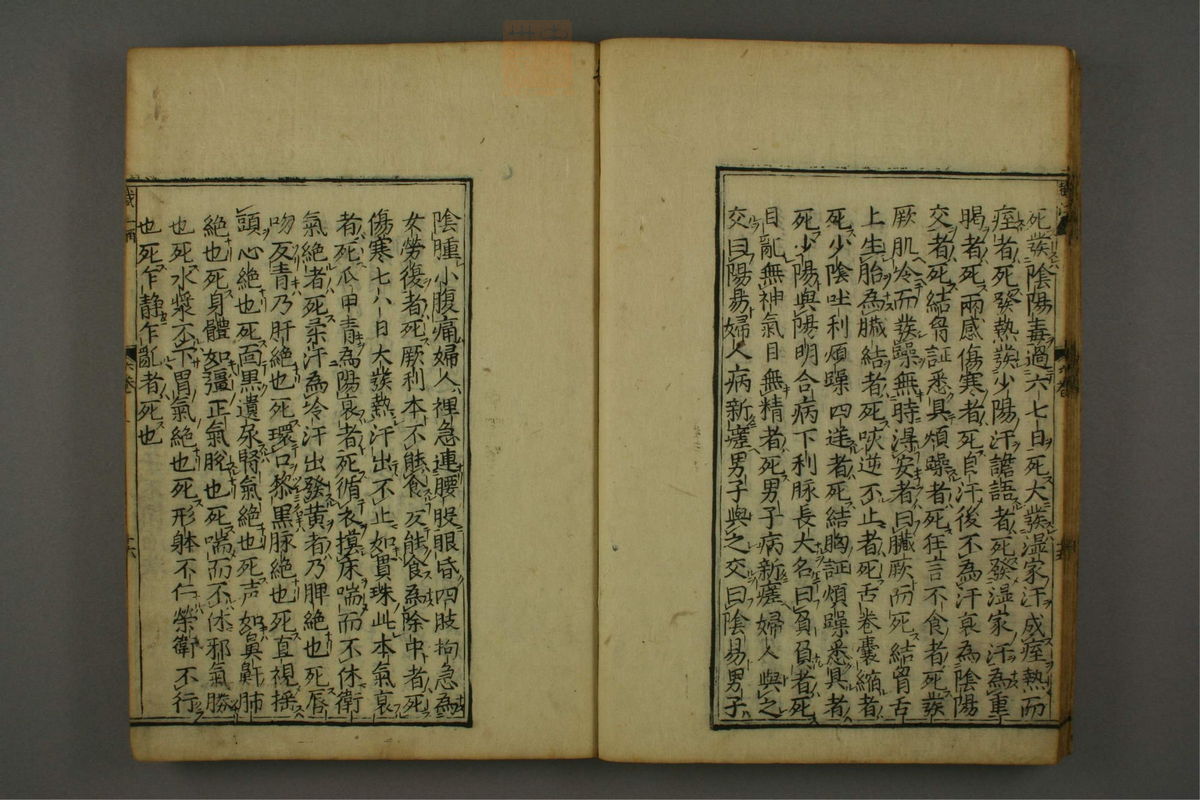 死發陰陽毒過六七日死大發湿家汗成痓熱而
痓者死發熱發少陽汗譫語者死發湿家汗為重
暍者死兩感傷寒者死自汗後不為汗衰為陰陽
交者死結胷証悉具煩躁者死狂言不食者死發
厥肌冷而發躁無時淂安者曰臟厥而死結胷舌
上生胎為臟結者死咴逆不止者死舌卷囊縮者
死少陰吐利煩躁四逆者死結胸証煩躁悉具者
死少陽與陽明合病下利脉長大名曰負負者死
目乱無神氣目無精者死男子病新瘥婦人與之
交曰陽易婦人病新瘥男子與之交曰陰易男子
陰腫小腹痛婦人裡急連腰股眼昏四肢拘急為
女勞復者死厥利本不能食反能食為除中者死
傷寒七八日大發熱汗出不止如貫珠此本氣衰
者死爪甲青為陽衰者死循衣摸床喘而不休衛
氣絶者死柔汗為冷汗出發黄者乃脾絶也死唇
吻反青乃肝絶也死環口黎黒脉絶也死直視揺
頭心絶也死面黒遺尿腎氣絶也死声如鼻鼾肺
絶也死身體如彊正氣脫也死喘而不休邪氣勝
也死水漿不下胃氣絶也死形躰不仁榮衛不行
也死乍静乍亂者死也